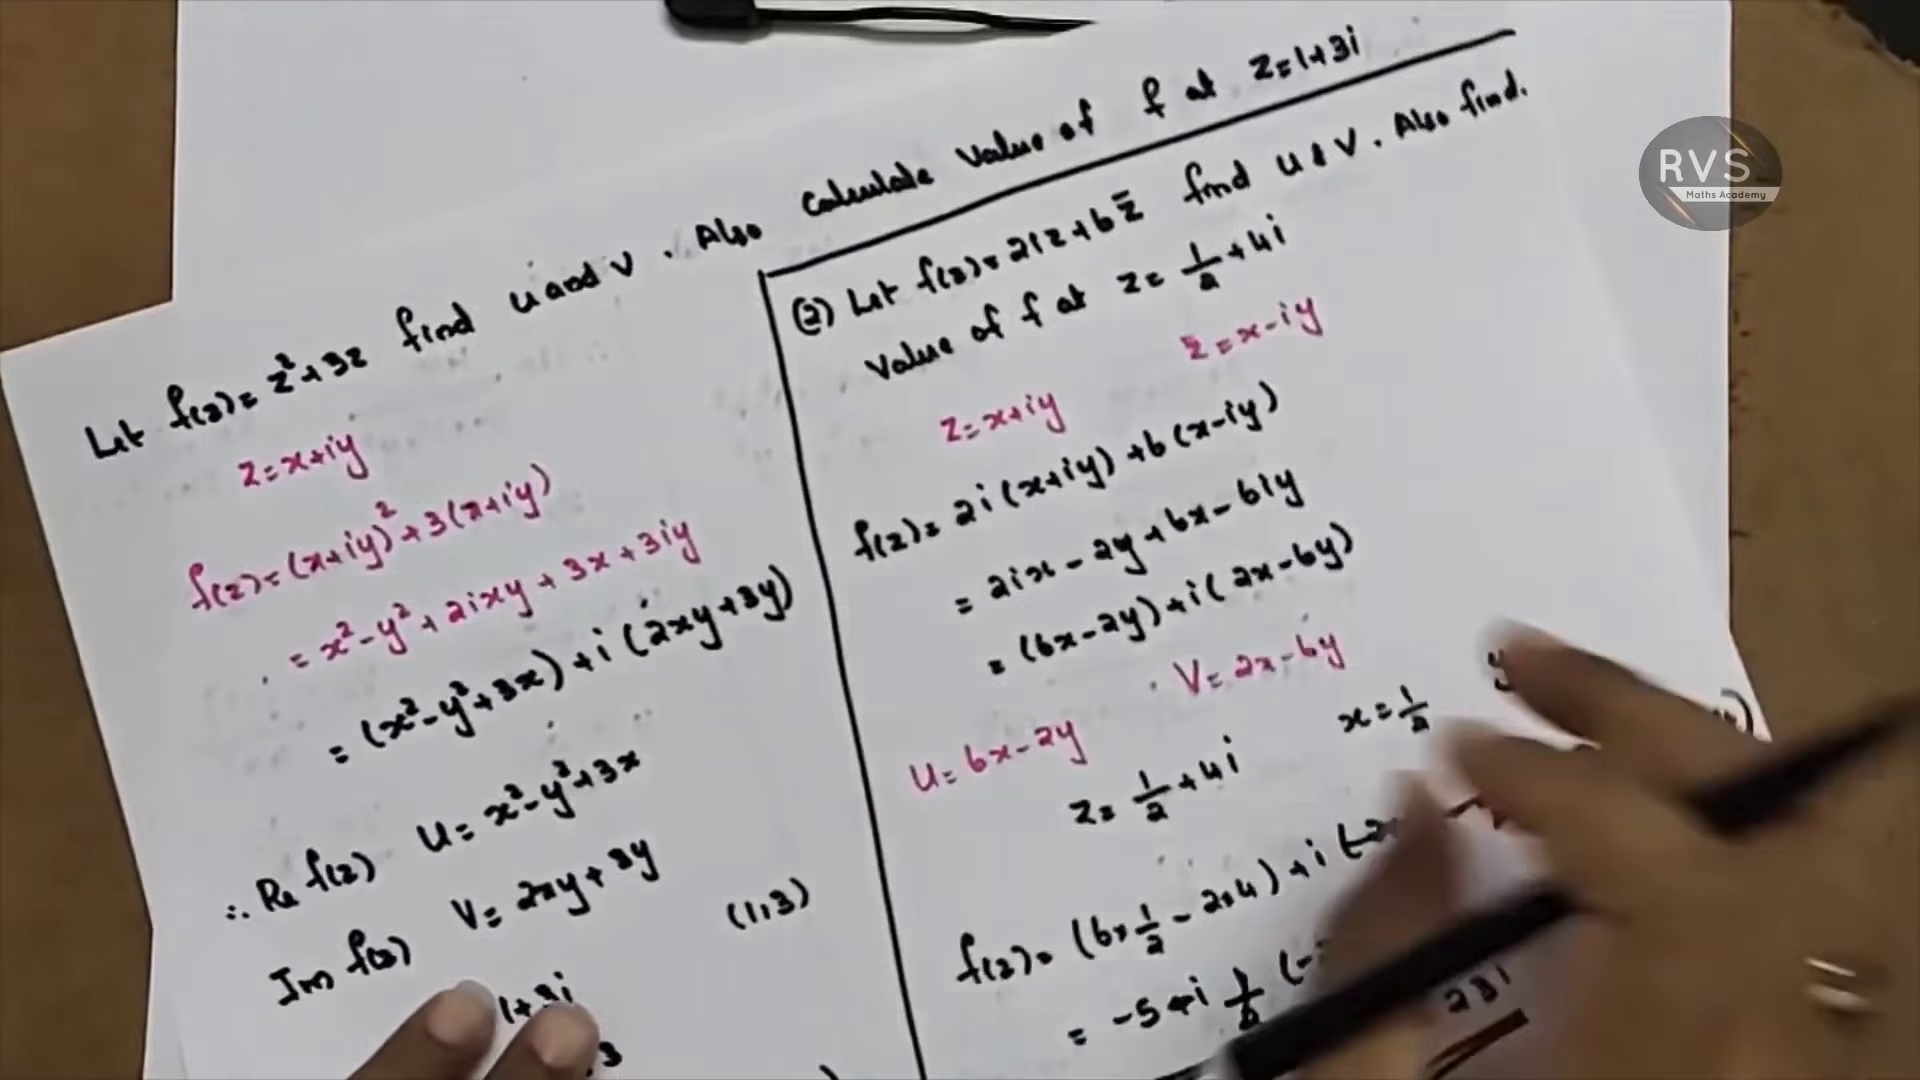 Let f(z) = z² + 3z find u and v. Also calculate value of f at z = 1+3i
z = x+iy
f(z) = (x+iy)² + 3(x+iy)
= x² - y² + 2ixy + 3x + 3iy
= (x² - y² + 3x) + i (2xy + 3y)
∴ Re f(z) u = x² - y² + 3x
Im f(z) v = 2xy + 3y
(1,3)
1+3i
3
(2) Let f(z) = 2iz + 6z̄ find u & v. Also find.
value of f at z = 1/2 + 4i
z = x+iy z̄ = x-iy
f(z) = 2i (x+iy) + 6 (x-iy)
= 2ix - 2y + 6x - 6iy
= (6x - 2y) + i (2x - 6y)
u = 6x - 2y v = 2x - 6y
z = 1/2 + 4i x = 1/2 y
f(z) = (6 × 1/2 - 2×4) + i (
= -5 + i
23i
RVS
Maths Academy